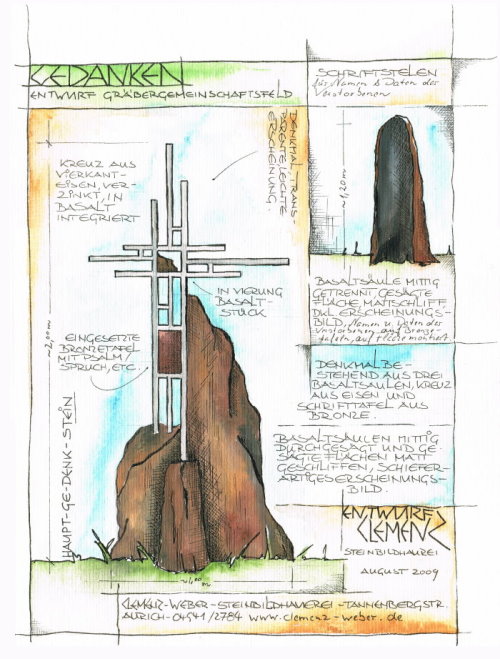 GEDANKEN
ENTWURF GRÄBERGEMEINSCHAFTSFELD
SCHRIFTSTELEN
für Namen & Daten der
Verstorbenen
DENKMAL, TRANS-
PARENTE, LEICHTE
ERSCHEINUNG.
KREUZ AUS
VIERKANT-
EISEN, VER-
ZINKT, IN
BASALT
INTEGRIERT
~1,20 m
IN VIERUNG
BASALT-
STÜCK
BASALTSÄULE MITTIG
GETRENNT GESÄGTE
FLÄCHE, MATTSCHLIFF,
DKL ERSCHEINUNGS-
BILD, Namen u. Daten des
Verstorbenen auf Bronze-
tafeln, auf Fläche montiert
~2,00 m
EINGESETZTE
BRONZETAFEL
MIT PSALM/
SPRUCH, ETC.
DENKMAL BE-
STEHEND AUS DREI
BASALTSÄULEN, KREUZ
AUS EISEN UND
SCHRIFTTAFEL AUS
BRONZE.
HAUPT-GE-DENK-STEIN
BASALTSÄULEN MITTIG
DURCHGESAGT UND GE-
SÄGTE FLÄCHEN MATT
GESCHLIFFEN, SCHIEFER-
ARTIGES ERSCHEINUNGS-
BILD.
ENTWURF
CLEMENZ
STEINBILDHAUEREI
AUGUST 2009
~1,00 m
CLEMENZ-WEBER-STEINBILDHAUEREI-TANNENBERGSTR.
AURICH-04941/2784 www.clemenz-weber.de